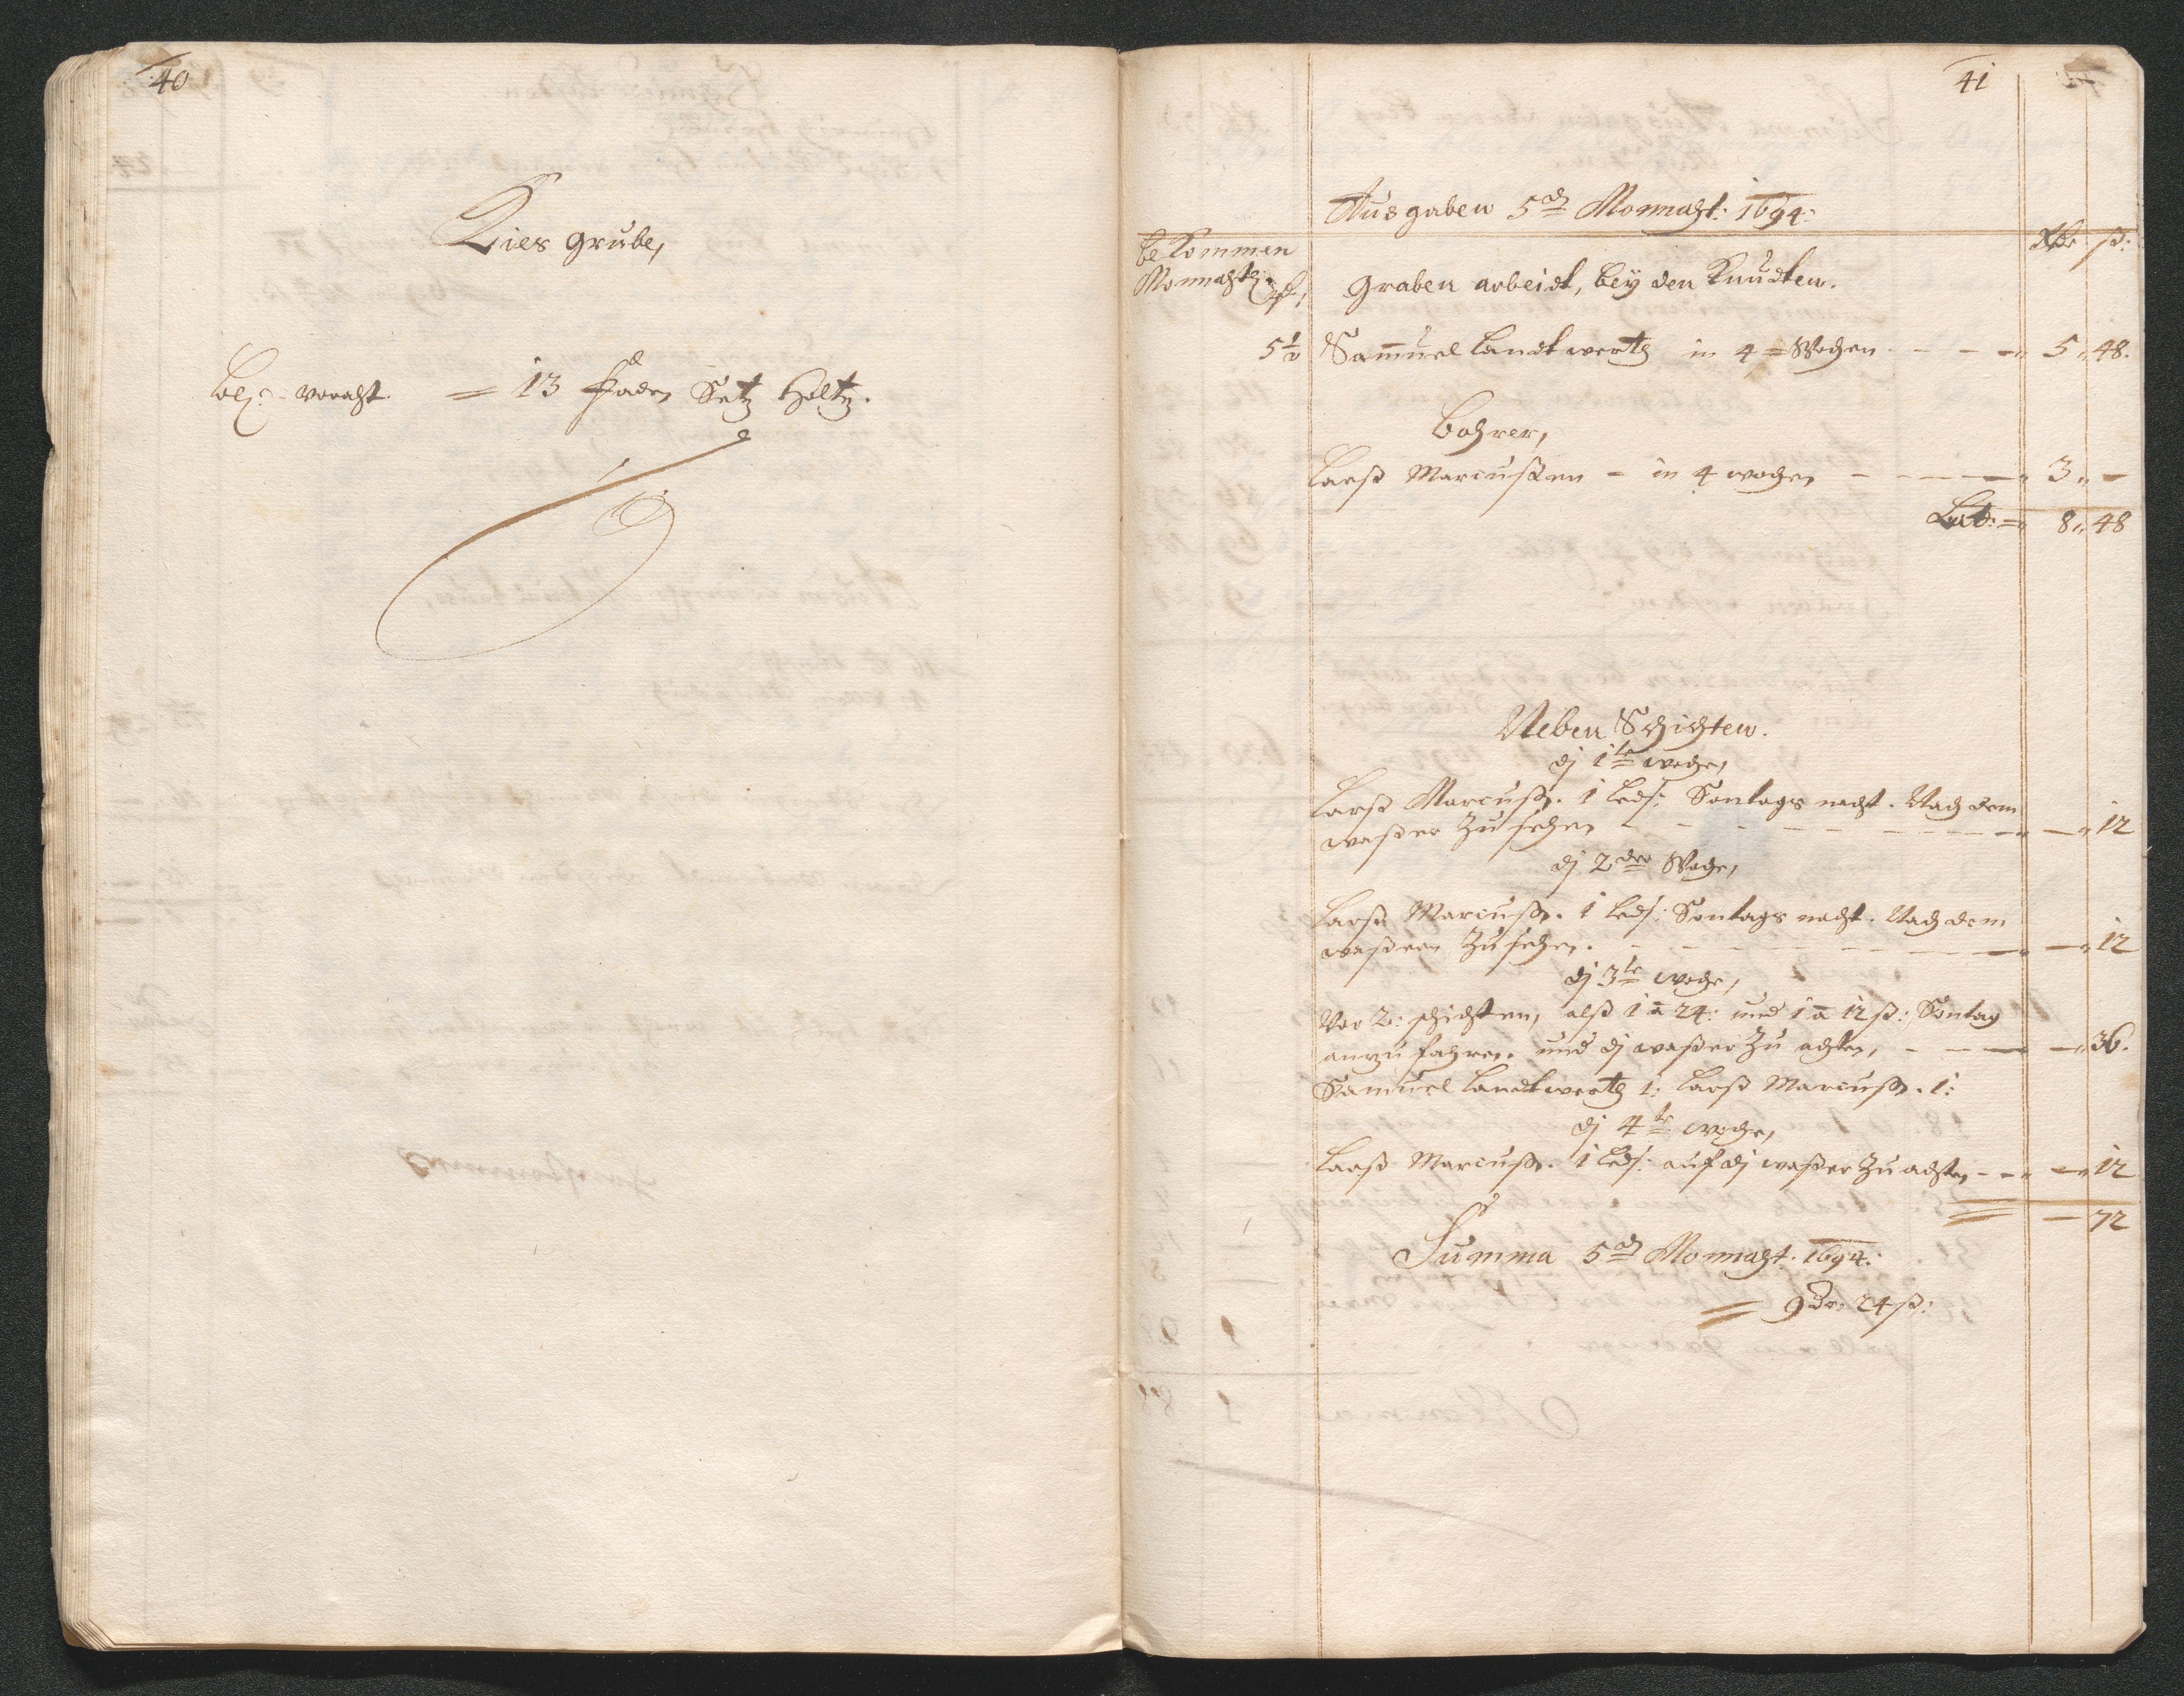 40
Kies grube,
vorraht. = 13 faden Setz holtz.
41
Ausgaben 5 Monnaht: 1694:
be Kommen
Monnahtl:
Rdr ß:
graben arbeidt, bey den Knudten.
5 1/2 Sam̄uel Landtwertz in 4 = Wochen - - - 5 " 48.
bohrer,
Larß Marcussen - in 4 wochen - - - 3 " -
Lat: = 8 " 48
Neben Schichten.
dj 1te woche,
Larß Marcuß. 1 led: Sontags nacht. Nach dem
waßer Zu sehen - - - 12
dj 2dre Woche,
Larß Marcuß. 1 led: Sontags nacht. Nach dem
waßern Zu sehen. - - - 12
dj 3te woche,
Vor 2: schichten, alß 1 a 24: und 1 a 12 ß: Sontag
anzufahren. und dj waßer Zu achten, - - - 36.
Samuel Landtwertz 1: Larß Marcuß. 1:
dj 4te woche,
Larß Marcuß. 1 led: auf dj waßer Zu achten - - - 12
= - 72
Summa 5 Monnaht. 1694:
= 9 dr, 24 ß: